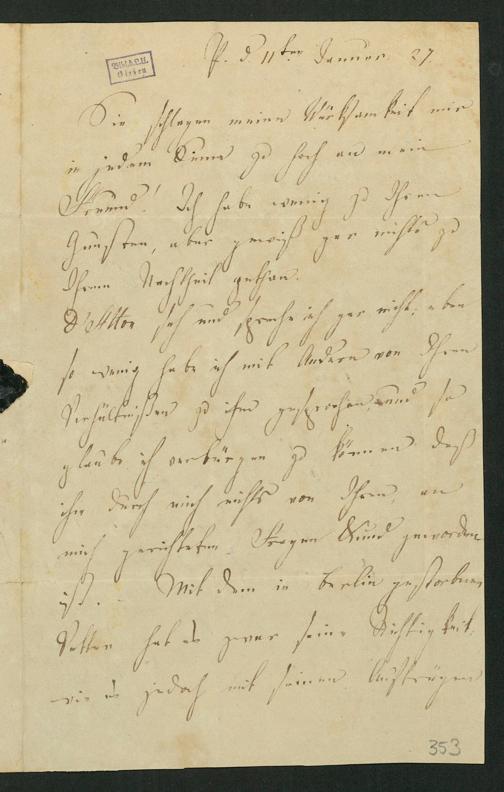 P. d. 11ten Januar 27.
BIBLIOTH.
Gießen
Sie schlagen meine Wirksamkeit mir
in jedem Sinne zu hoch an mein
Freund! Ich habe wenig zu Ihren
Gunsten, aber gewiß gar nichts zu
Ihrem Nachtheil gethan.
D'Alton sah und sprach ich gar nicht, eben
so wenig habe ich mit Andern von Ihren
Verhältnißen zu ihm gesprochen, und so
glaube ich verbürgen zu können daß
ihm durch mich nichts von Ihren, an
mich gerichteten Fragen Kund geworden
ist. Mit dem in Berlin gestorbenen
Vetter hat es zwar seine Richtigkeit,
wie es jedoch mit seinen Aufträgen
353